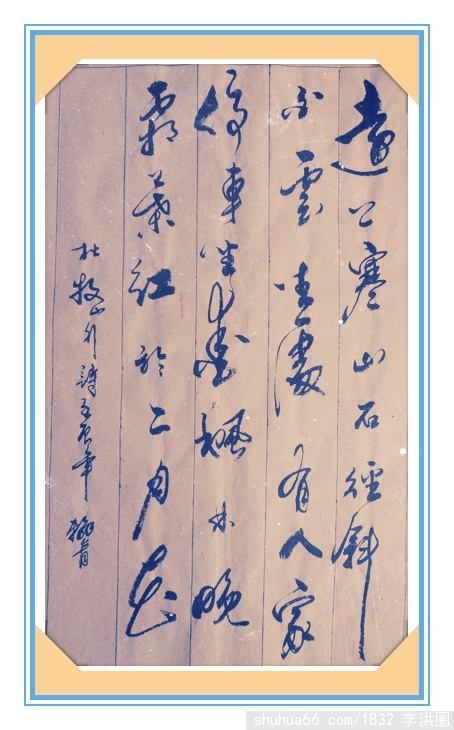 遠上寒山石徑斜
白雲生處有人家
停車坐愛楓林晚
霜葉紅於二月花
杜牧山行詩壬辰年
shuhua66.com/1832 李洪圈